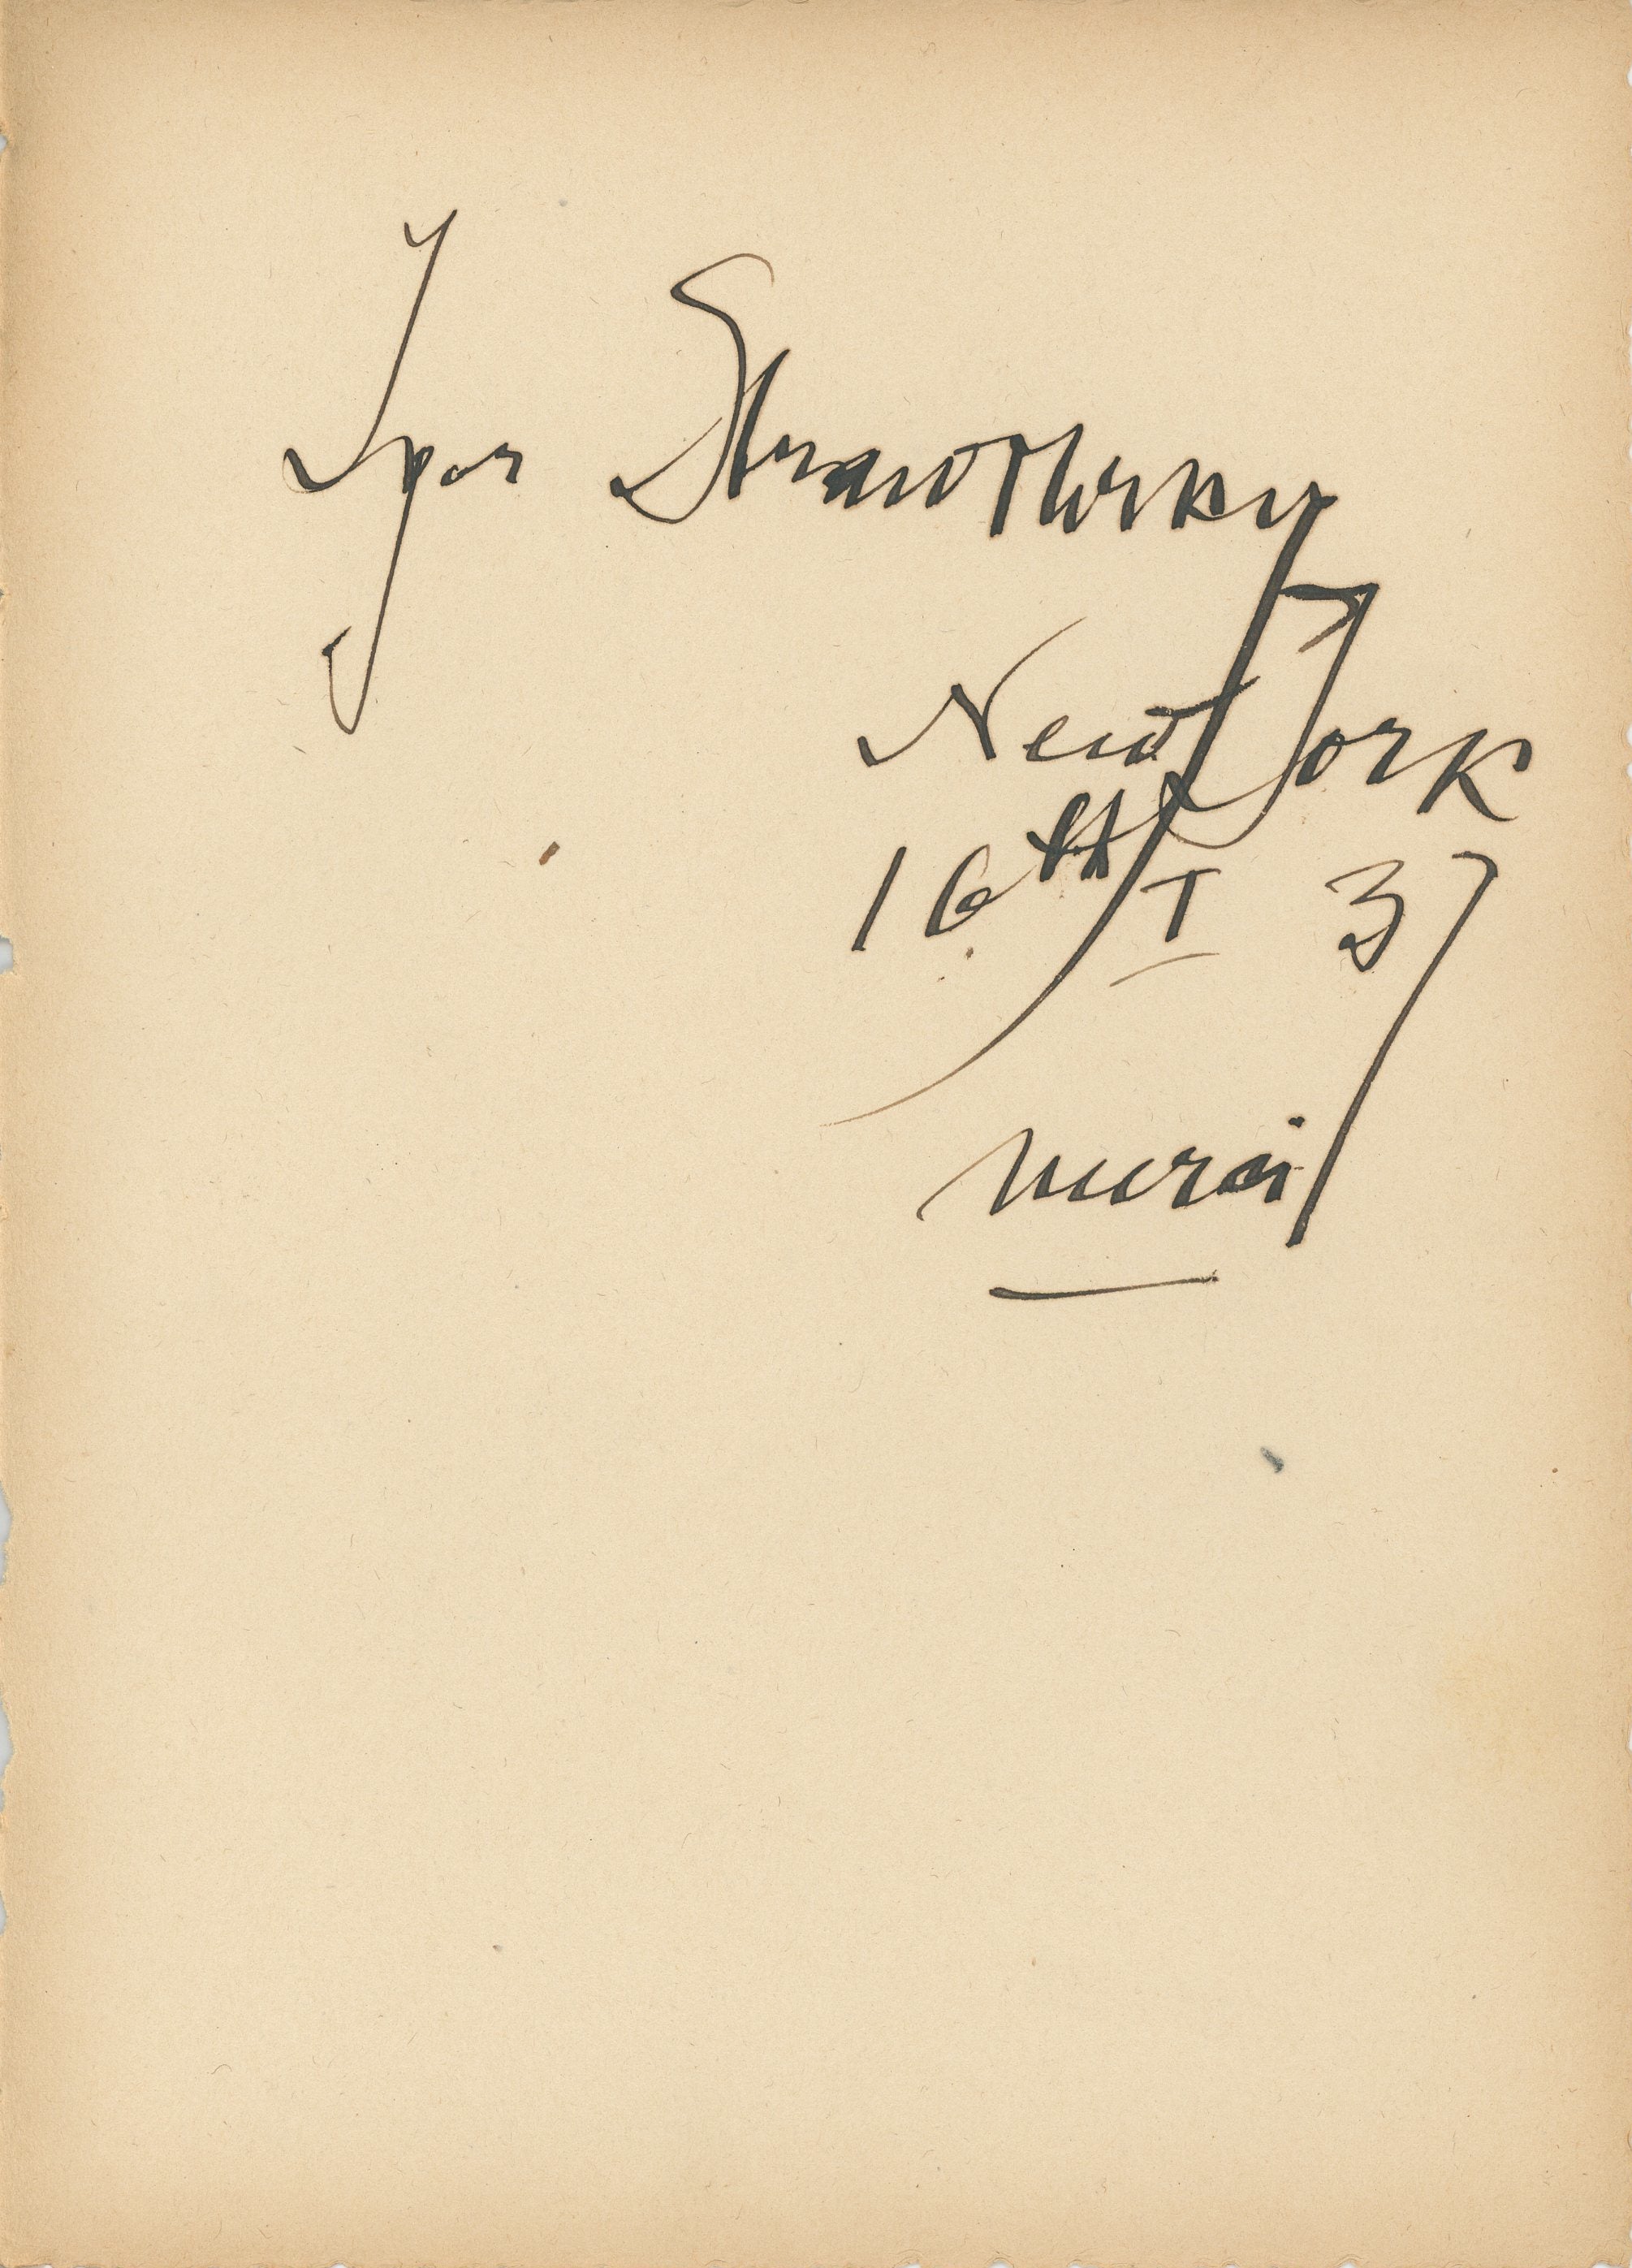 Igor Strawinsky
New York
16th I 37
merci